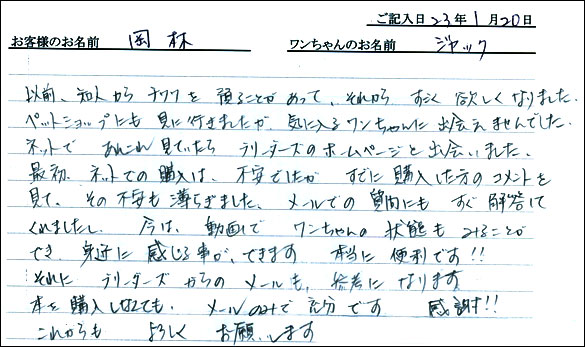 ご記入日 23年 1月 20日
お客様のお名前 岡林 ワンちゃんのお名前 ジャック
以前、知人から チワワを 預ることがあって、それから すごく 欲しくなりました.
ペットショップにも 見に行きましたが、気に入るワンちゃんに 出会えませんでした.
ネットで あれこれ見ていたら ブリーダーズのホームページと出会いました.
最初、ネットでの購入は、不安でしたが すでに購入した方のコメントを
見て、その不安も薄らぎました、メールでの質問にも すぐ解答して
くれましたし、今は、動画で ワンちゃんの 状態も みることが
でき、身近に 感じる事が、できます 本当に 便利です!!
それに ブリーダーズ からのメールも、参考に なります
本を購入しなくても、メールのみで 充分です 感謝!!
これからも よろしく お願いします